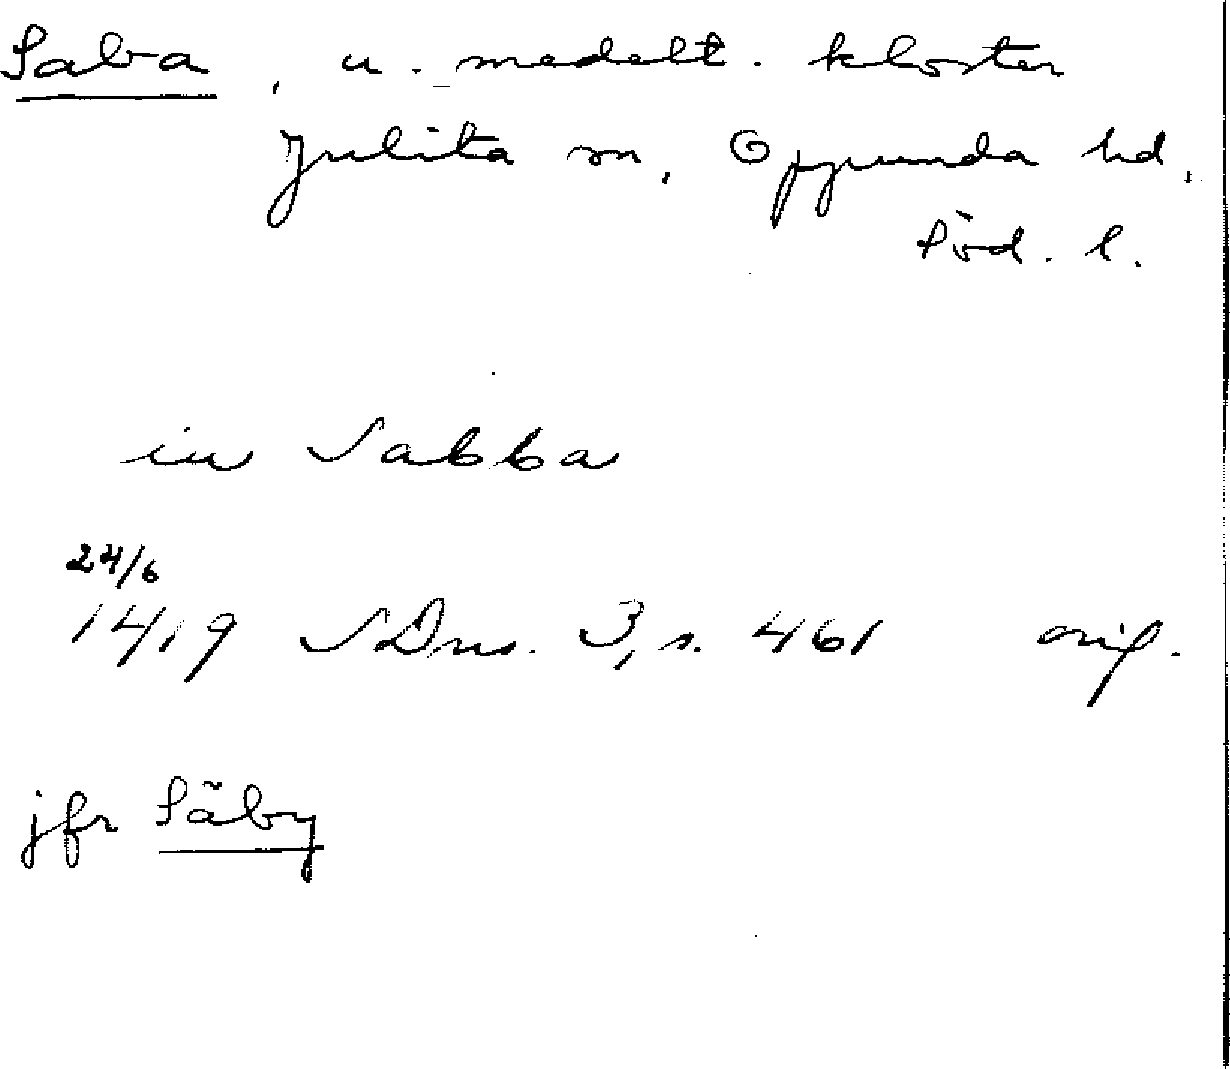 Saba, u. medelt. kloster
Julita sn, Oppunda hd,
Söd. l.
in Sabba
24/6
1419 SDns. 3, s. 461 orig.
jfr Säby